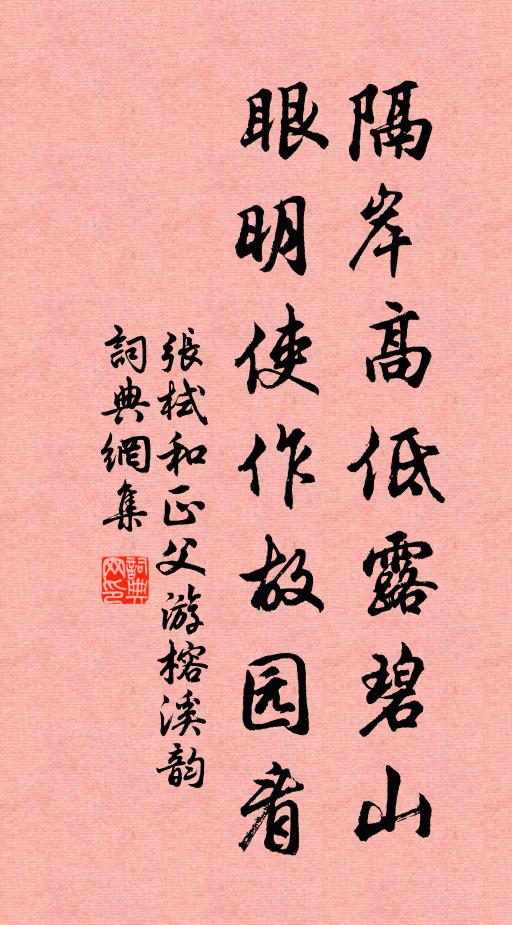 隔岸高低露碧山
眼明使作故园看
張栻和正父游榕溪韵
詞典網集
詞典网印